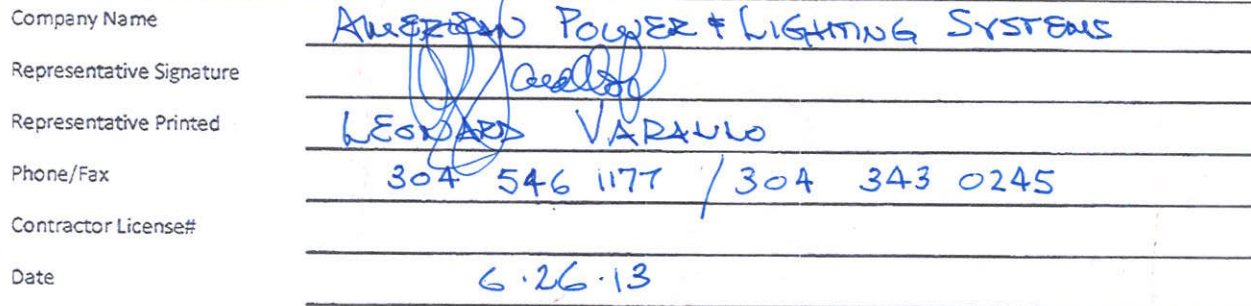 Company Name AMERICAN POWER & LIGHTING SYSTEMS
Representative Signature
Representative Printed LEONARD
Phone/Fax 304 546 1177 / 304 343 0245
Contractor License#
Date 6.26.13